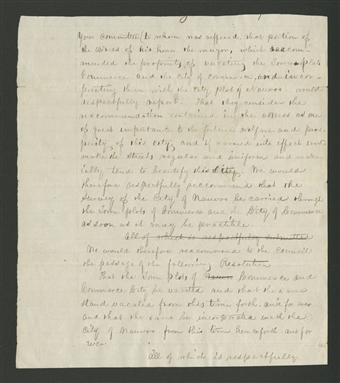 Your committee, to whom was referred, that portion of
the address of his honor the mayor, which recom-
mended the propriety of vacating the Town plots
Commerce and the City of Commerce, and incor-
porating them with the City plot of Nauvoo would
respectfully report. That they consider the
recommendation contained in the address as one
of great importance to the future welfare and pros-
perity of this city, and if carried into effect will
make the Streets regular and uniform and mater-
ially tend to beautify this City. We would
therefore respectfully recommend that the
Survey of the City of Nauvoo be carried through
the Town plots of Commerce and the City of Commerce
as soon as it may be practicable.
All of which is respectfully submitted
We would therefore recommend to the Council
the passage of the following Resolution
That the Town plots of Commerce and
Commerce City be vacated and that the same
stand vacated from this time forth and for ever
and that the same be incorporated with the
City of Nauvoo from this time henceforth and for
ever.
All of which is respectfully